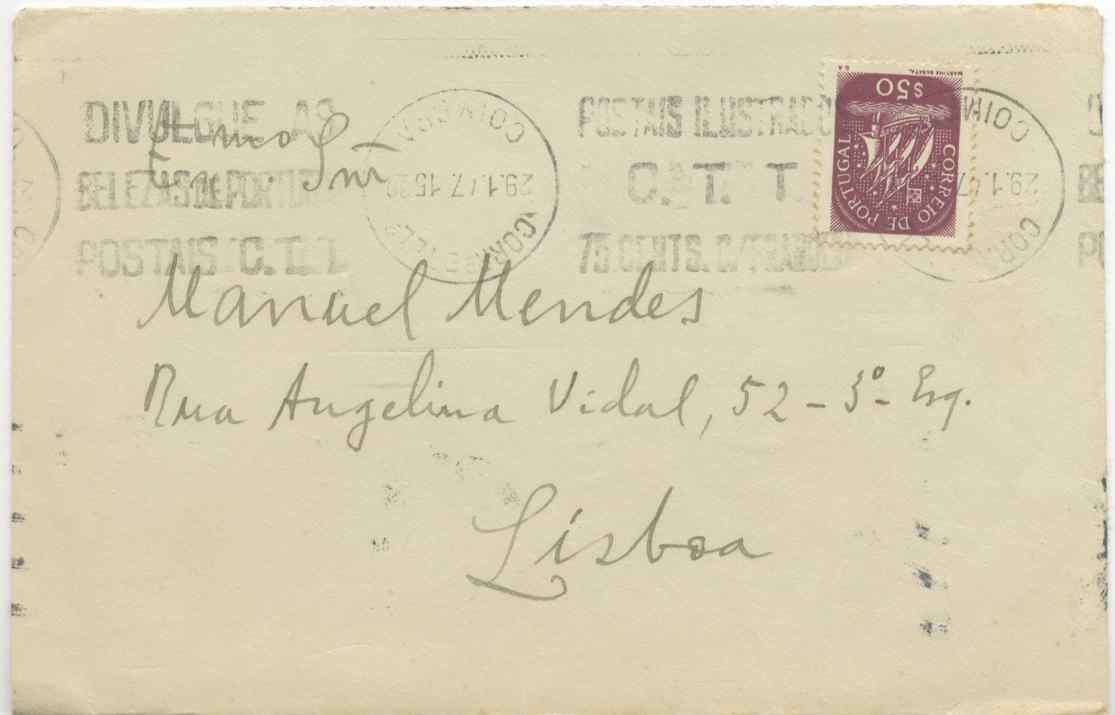 DIVULGUE AS
BELEZAS DE PORTUGAL
POSTAIS C. T. T.
COIMBRA
29.1.47.15
CORR
POSTAIS ILUSTRADOS
C. T. T.
75 CENTS. C/FRANQUIA
$50
CORREIO DE PORTUGAL
COIM
29.1.47
CORR
Exmo Snr
Manuel Mendes
Rua Angelina Vidal, 52-3º- Esq.
Lisboa